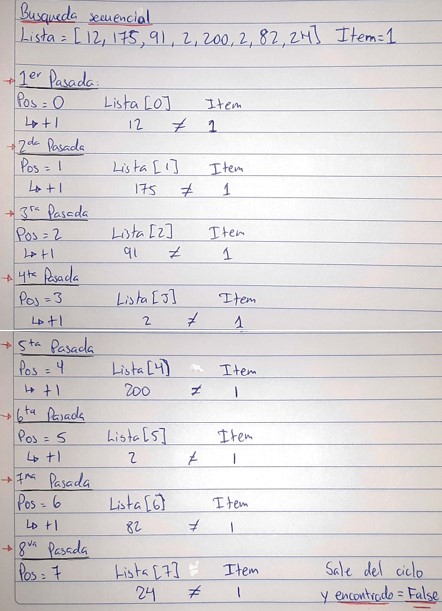 Busqueda secuencial
Lista = [12, 175, 91, 2, 200, 2, 82, 24] Item=1
→ 1er Pasada:
Pos = 0 Lista [0] Item
↳ +1 12 ≠ 1
→ 2da Pasada
Pos = 1 Lista [1] Item
↳ +1 175 ≠ 1
→ 3ra Pasada
Pos = 2 Lista [2] Item
↳ +1 91 ≠ 1
→ 4ta Pasada
Pos = 3 Lista [3] Item
↳ +1 2 ≠ 1
→ 5ta Pasada
Pos = 4 Lista [4] Item
↳ +1 200 ≠ 1
→ 6ta Pasada
Pos = 5 Lista [5] Item
↳ +1 2 ≠ 1
→ 7ma Pasada
Pos = 6 Lista [6] Item
↳ +1 82 ≠ 1
→ 8va Pasada
Pos = 7 Lista [7] Item Sale del ciclo
24 ≠ 1 y encontrado = False